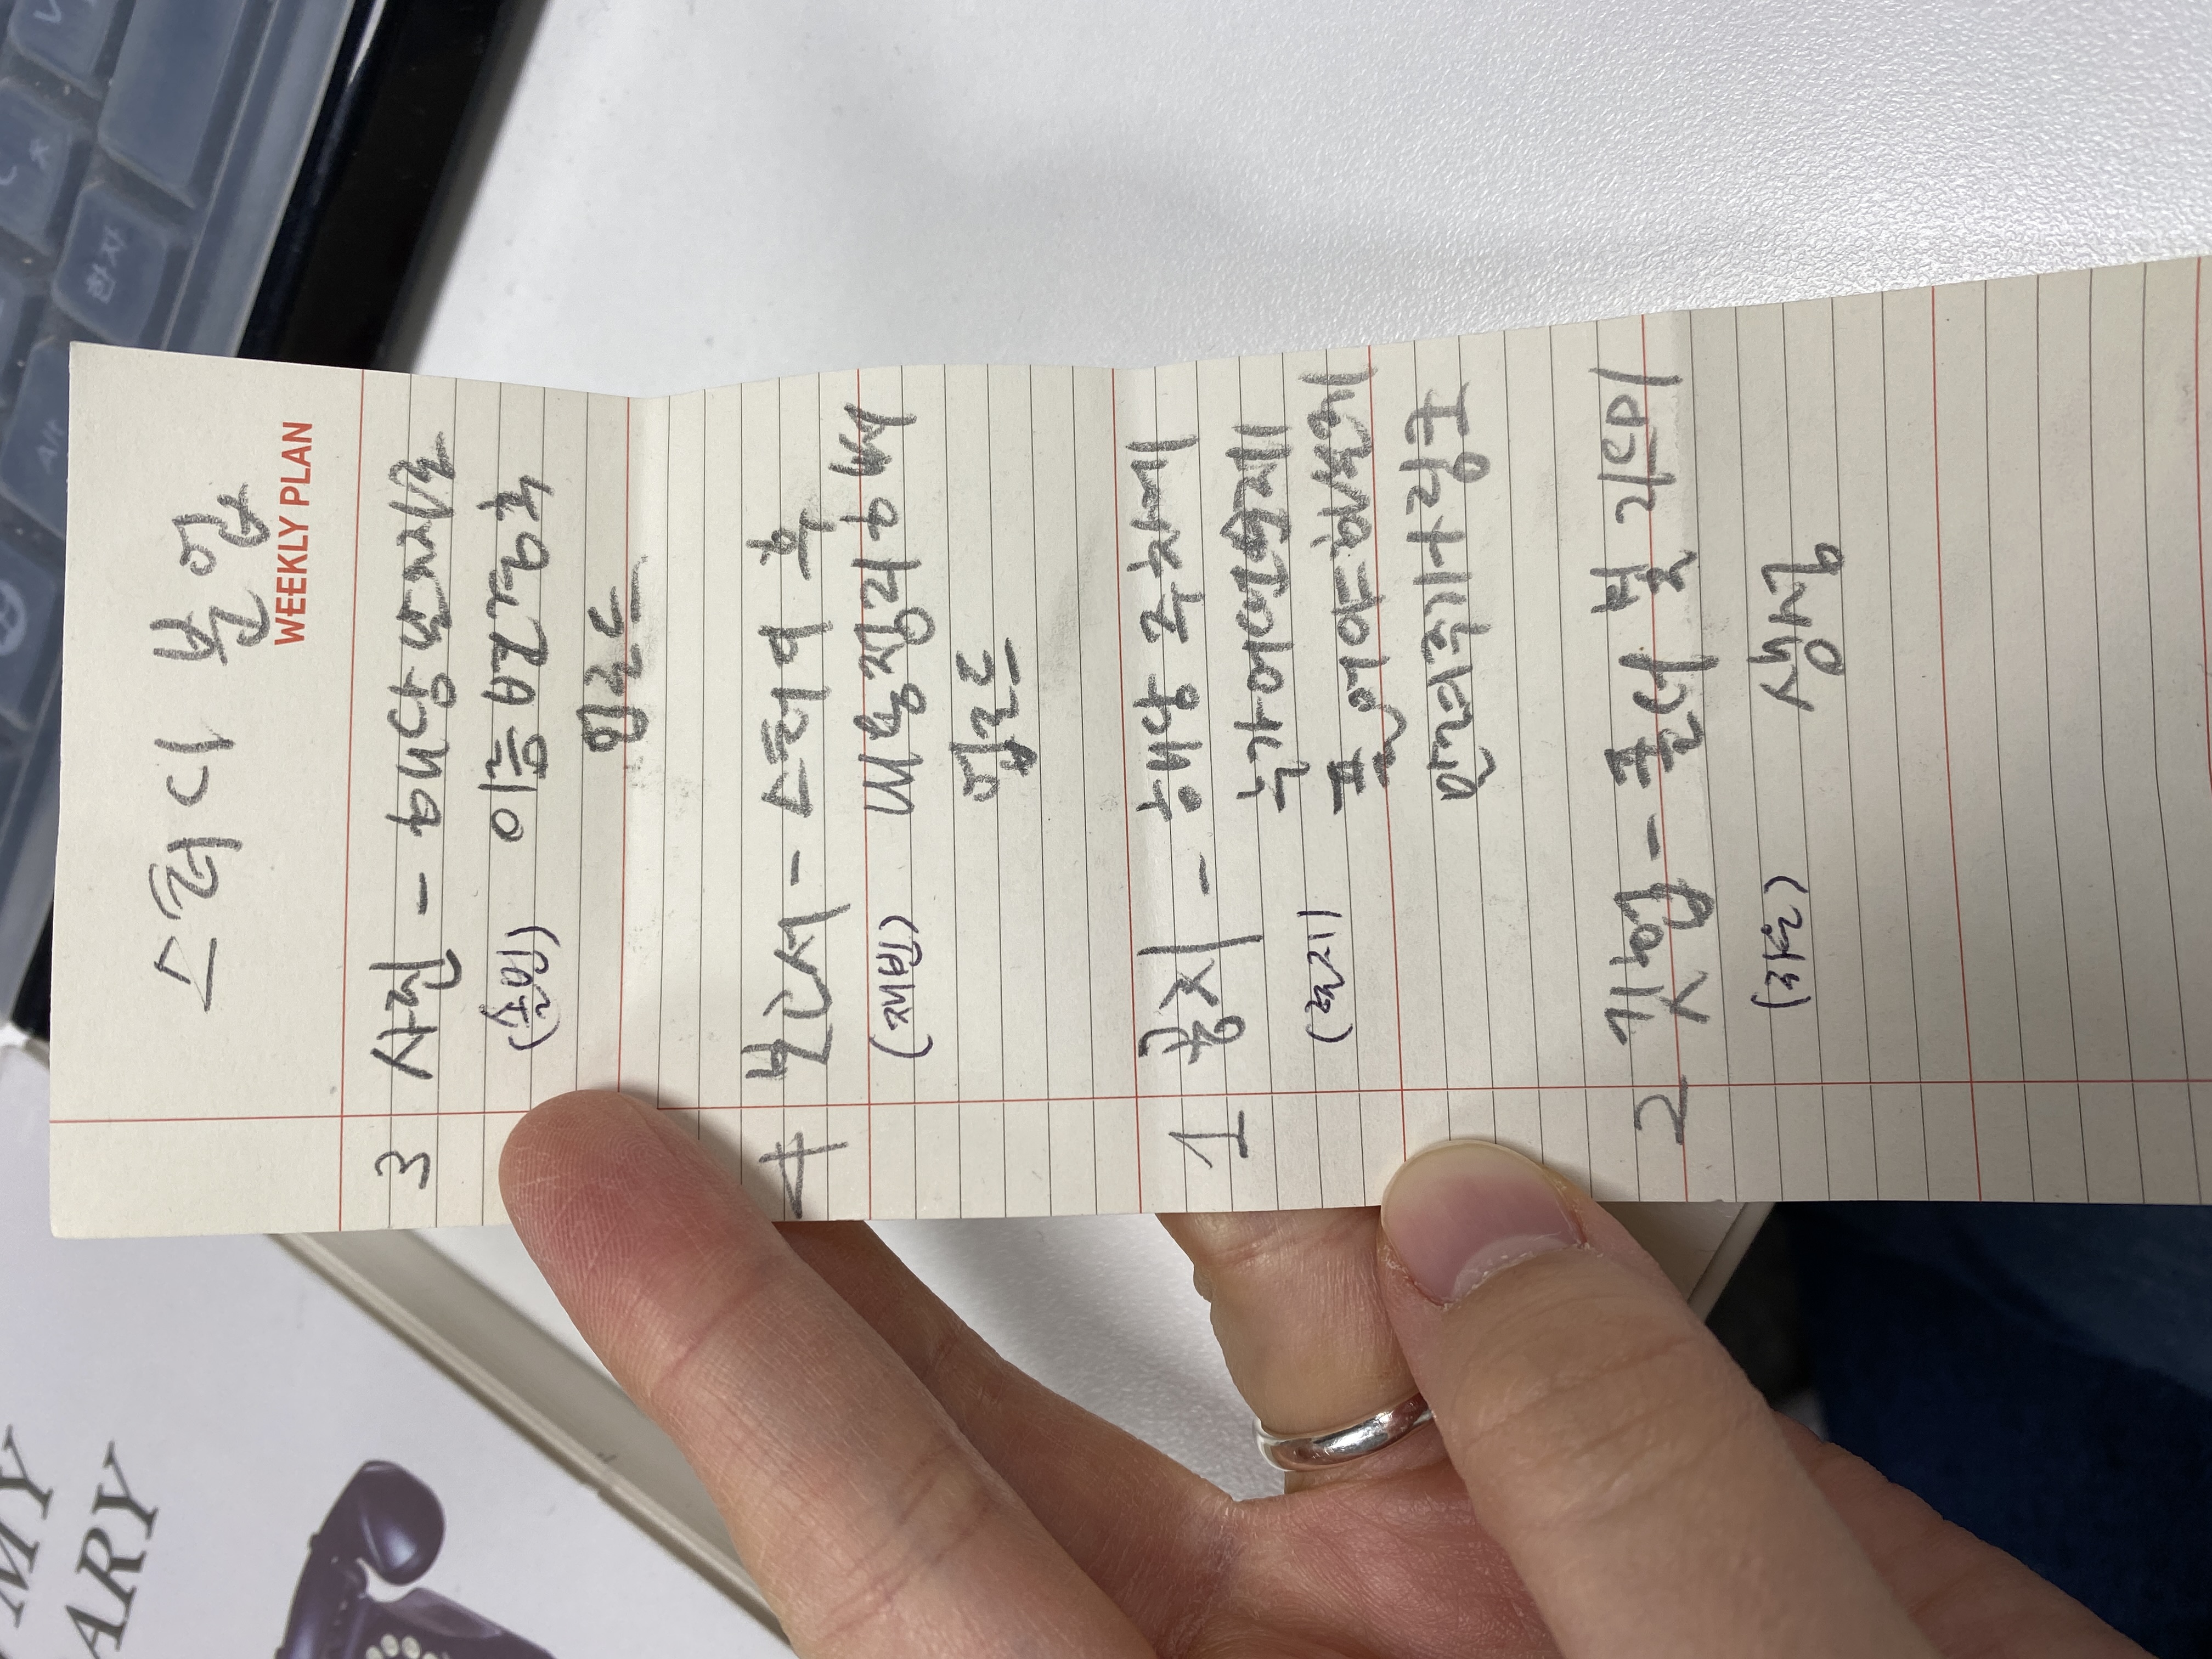 MY
ARY
Alt
한자
스터디 분업
WEEKLY PLAN
3 사진 - 해당 날짜로
(솔민) 이름변경 후
업로드
4 보고서 - 스터디 후
(재빈) 내용정리해서
업로드
1 공지 - 해당 주차에
누가 어떤 문제
풀어야 하는지
알려주기 + 링크
2 깃헙 - 폴더 및 리드미
(하은) 생성